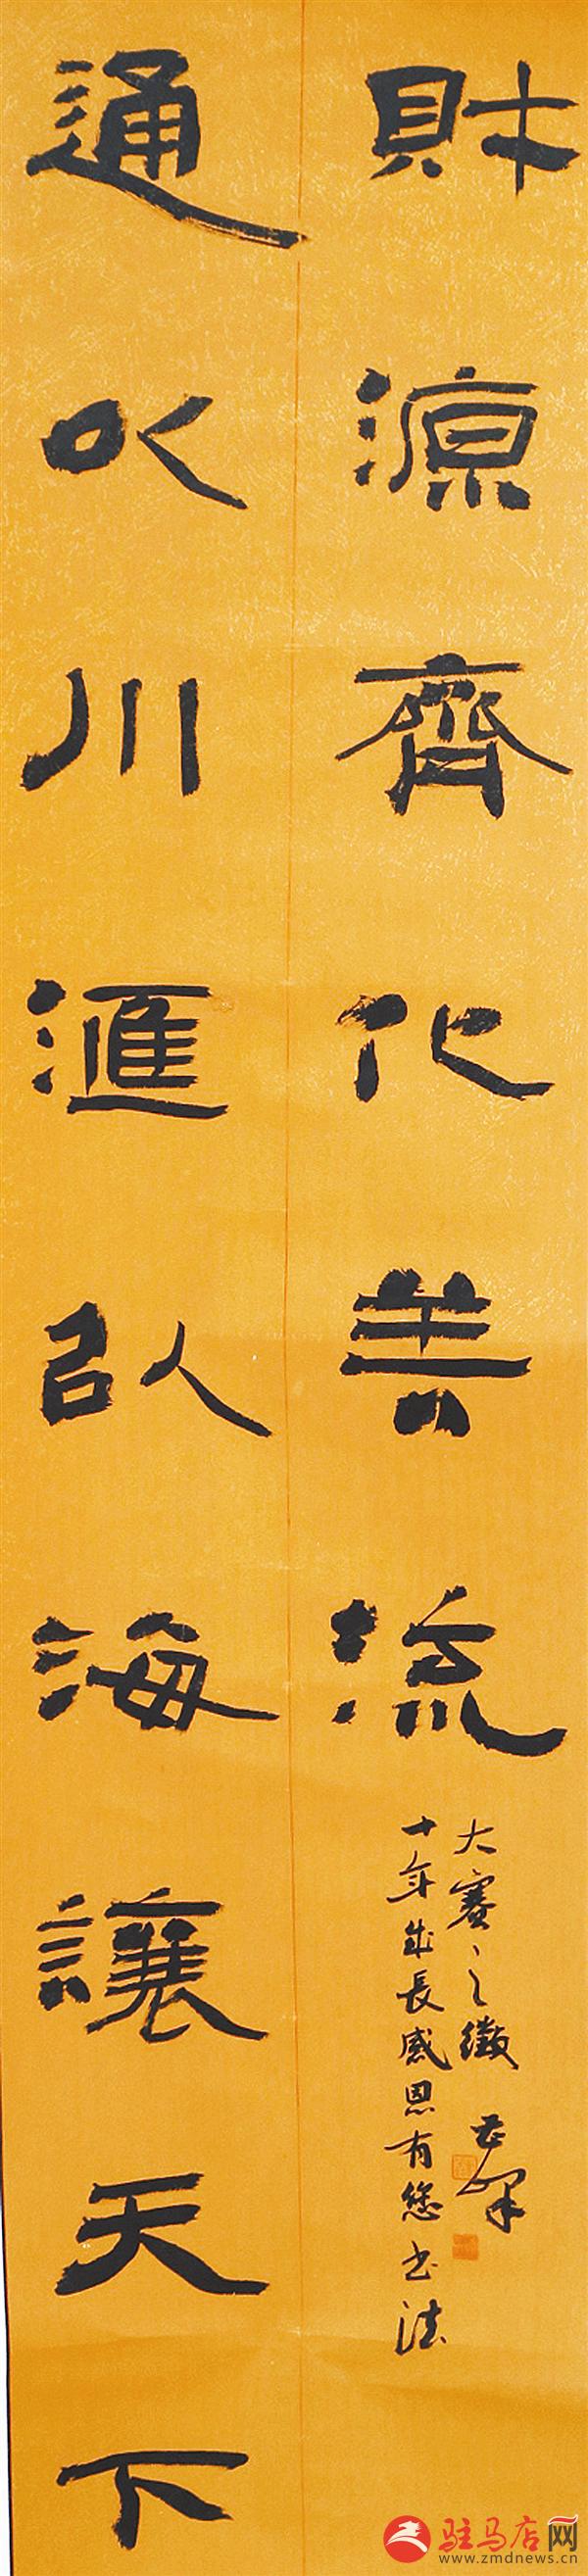 通以川滙以海讓天下
財源齊化善流
十年成長感恩有您书法
大賽之徵
驻马店网
www.zmdnews.cn